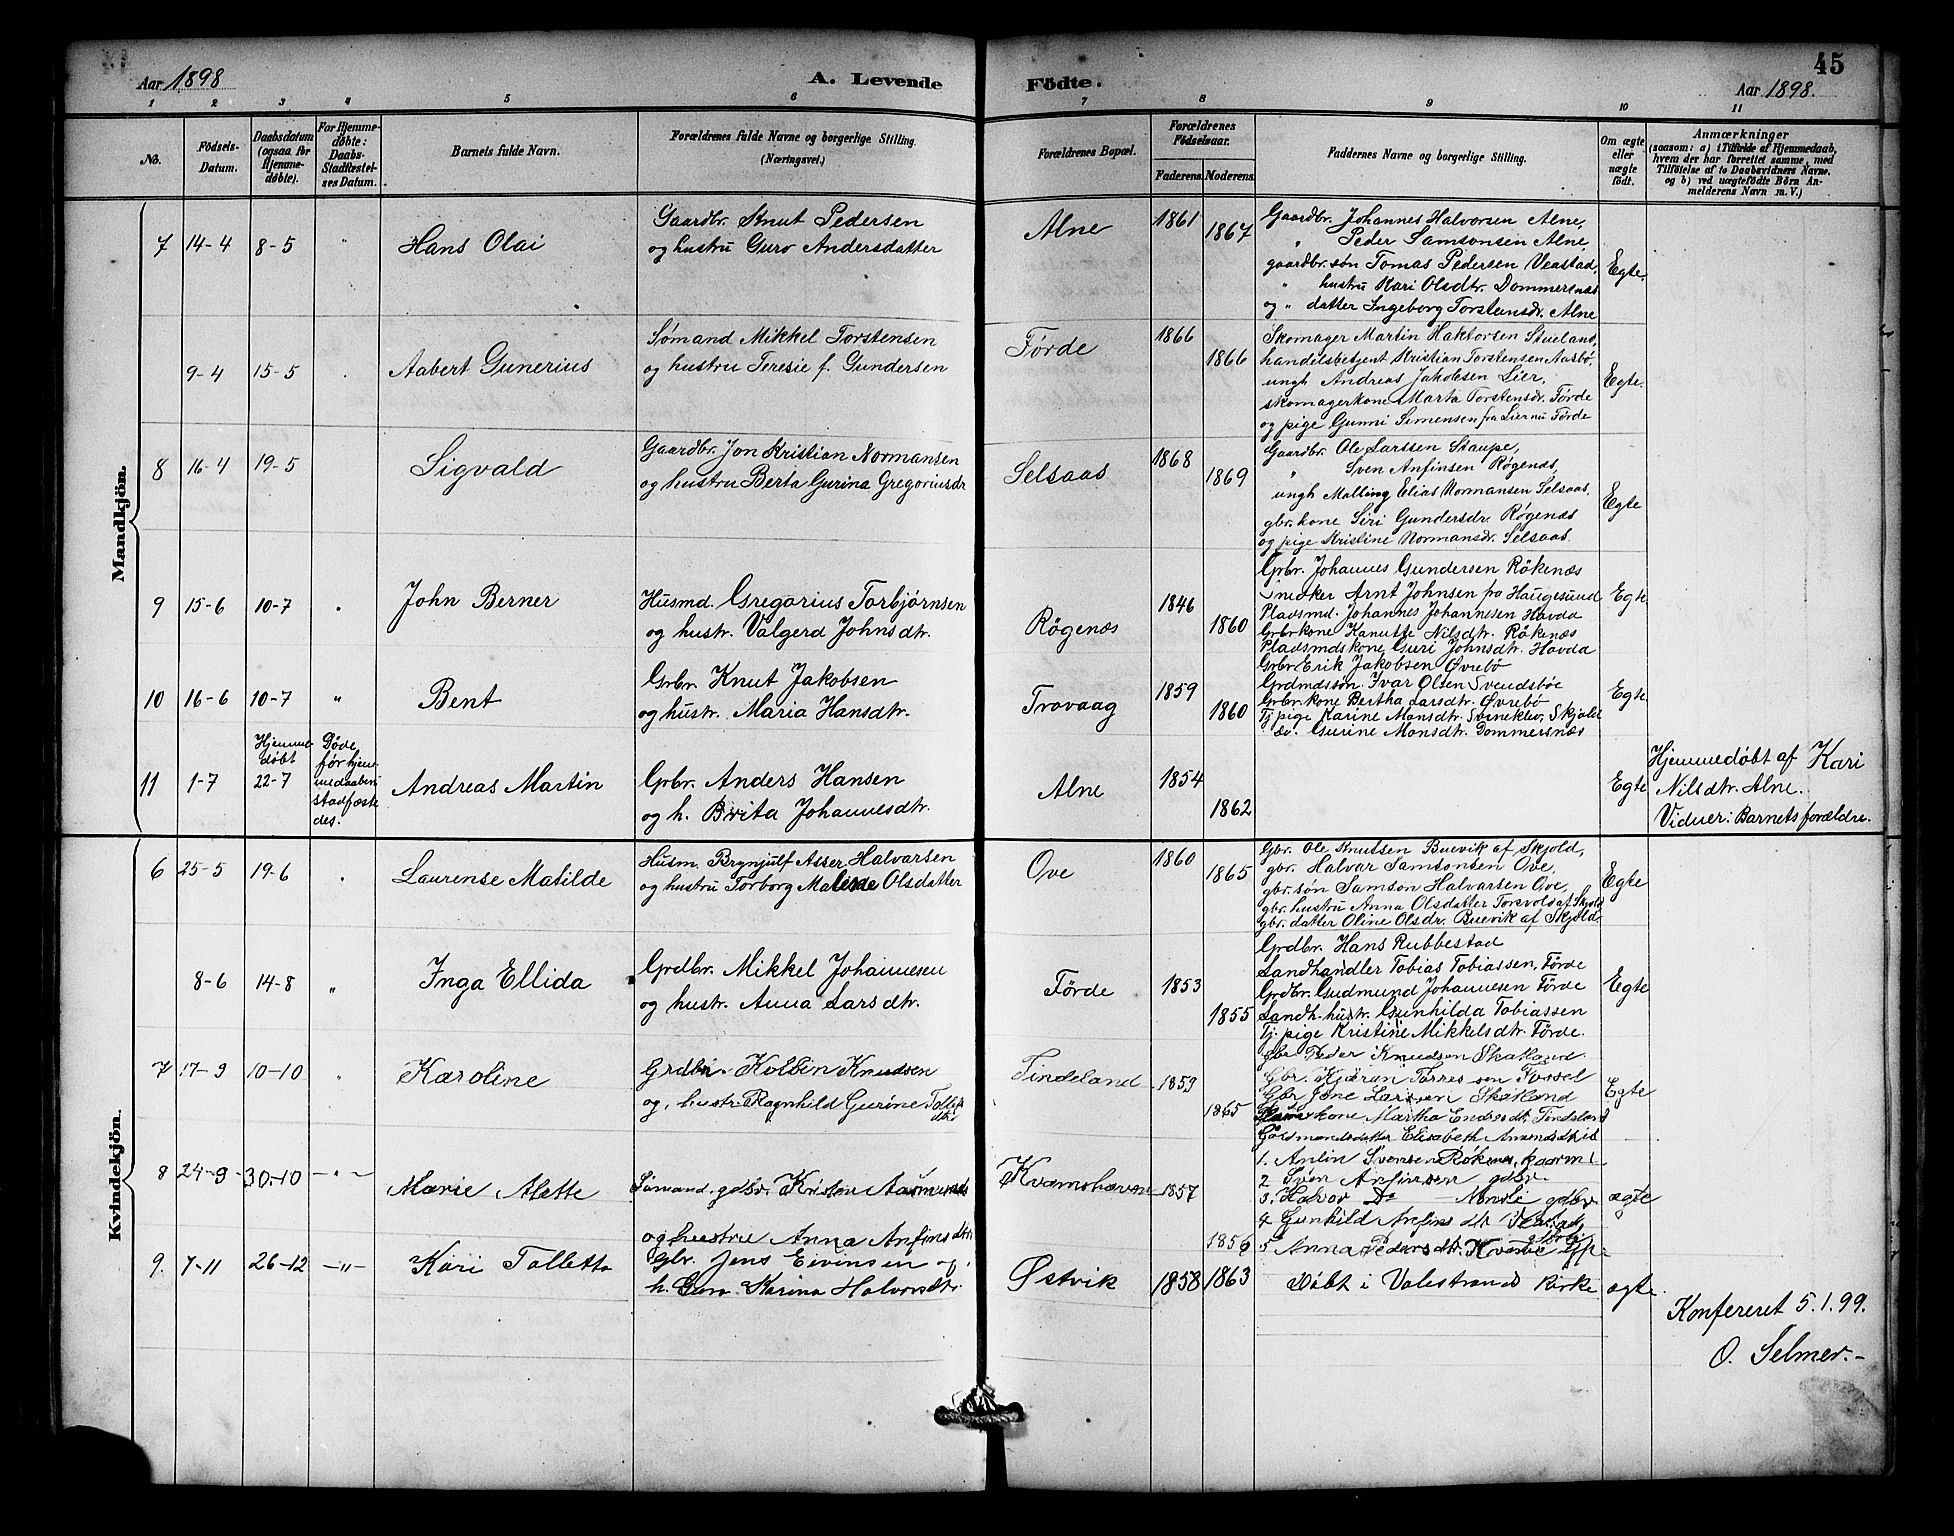 45
Aar 1898
A. Levende
Födte.
Aar 1898.
1 2 3 4 5 6 7 8 9 10 11
No.
Födsels-Datum.
Daabsdatum (ogsaa for Hjemmedöbte).
For Hjemmedöbte: Daabs-Stadfæstelses Datum.
Barnets fulde Navn.
Forældrenes fulde Navne og borgerlige Stilling.
(Næringsvei.)
Forældrenes Bopæl.
Forældrenes Födselsaar.
Faderens. Moderens.
Faddernes Navne og borgerlige Stilling.
Om ægte eller uægte födt.
Anmærkninger
(saasom: a) i Tilfælde af Hjemmedaab, hvem der har forrettet samme, med Tilföielse af to Daabsvidners Navne, og b) ved uægtefödte Börn Anmelderens Navn m. V.)
Mandkjön.
7 14-4 8-5 " Hans Olai
Gaardbr. Knut Pedersen
og hustru Guro Andersdatter
Alne 1861 1867
Gaardbr. Johannes Halvorsen Alne,
" Peder Samsonsen Alne,
gaardbr. søn Tomas Pedersen Veastad,
" hustru Kari Olsdtr. Dommersnæs
og " datter Ingeborg Torsteinsdr. Alne
Egte.
9-4 15-5 Aabert Gunerius
Sømand Mikkel Torstensen
og hustru Teresie f. Gundersen
Førde 1866 1866
Skomager Martin Haktorsen
handelsbetjent Kristian Torstensen Aasbø,
ungk Andreas Jakobsen Lier,
skomagerkone Marta Torstensdr. Førde
og pige Gunni Simensen fra Lier nu Førde
Egte.
8 16-4 19-5 Sigvald
Gaardbr. Jon Kristian Normansen
og hustru Berta Gurina Gregoriusdr
Selsaas 1868 1869
Gaardbr. Ole Larssen Staupe,
" Sven Anfinsen Røgenæs,
ungk Malling Elias Normansen Selsaas,
gbr. kone Siri Gundersdr. Røgenæs
og pige Kristine Normansdr. Selsaas.
Egte
9 15-6 10-7 John Berner
Husmd. Gregorius Torbjørnsen
og hustr. Valgerd Johnsdtr.
Røgenæs 1846 1860
Grbr. Johannes Gundersen Rökenæs
Snedker Arnt Johnsen fra Haugesund
Pladsmd. Johannes Johannesen Havda
Grbrkone Kanutte Nilsdtr. Rökenæs
Pladsmdskone Guri Johnsdtr. Havda
Egte
10 16-6 10-7 " Bent
Grbr. Knut Jakobsen
og hustr. Maria Hansdtr.
Trovaag 1859 1860
Grbr. Erik Jakobsen Øvrebö
Grdmdssön. Ivar Olsen Svendsböe
Grbr. kone Bertha Larsdtr. Øvrebö
Tj. pige Karine Monsdtr. Svineklev, Skjold
do. Gurine Monsdtr. Dommersnæs
Egte
11 1-7 Hjemmedøbt 22-7
Døde før hjemmedaaben stadfæstedes.
Andreas Martin
Grbr. Anders Hansen
og h. Brita Johannesdtr.
Alne 1854 1862
Egte
Hjemmedøbt af Kari
Nilsdtr. Alne.
Vidner: Barnets forældre.
Kvindekjön.
6 25-5 19-6 Laurense Matilde
Husm. Brynjulf Asser Halvarsen
og hustru Torborg Malene Olsdatter
Ove 1860 1865
Gbr. Ole Knutsen Buevik af Skjold,
gbr. Halvar Samsonsen Ove,
gbr. søn Samson Halvarsen Ove,
gbr. hustru Anna Olsdatter Torsvold af Skjold
gbr. datter Oline Olsdr. Buevik af Skjold
Egte
8-6 14-8 " Inga Ellida
Grdbr. Mikkel Johannesen
og hustr. Anna Larsdtr.
Førde 1853 1855
Grdbr. Hans Rubbestad
Landhandler Tobias Tobiassen, Förde
Grdbr. Gudmund Johannesen Förde
Landh. hustr. Gunhilda Tobiassen
Tj. pige Kristine Mikkelsdtr. Förde.
Egte
7 17-9 10-10 " Karoline
Grdbr. Kolbin Knudsen
og hustr. Ragnhild Gurine
Tindeland 1859 1865
gbr. Peder Knudsen Skatland.
Gbr. Kjøran Torressen Fossel
Gbr Jone Larsen Skatland
kone Martha Endresdt. Tindeland
Elisabeth
Egte
8 24-9 30-10 Marie Alette
Sømand. gdbr. Kristen
og hustru Anna Anfinsdtr
Kvamshavn 1857 1856
1. Anfin Svensen Røkenes,
2 Sven Anfinsen gdbr.
3. Halvor Do gdbr
4 Gunhild Anfinsdt.
5 Anna Pedersdt.
ægte
9. 7-11 26-12 Kari Tolletta
gbr. Jens Eivinsen og
h. Guro Karina Halvorsdtr.
Østvik 1858 1863
Døbt i Valestrand Kirke
ægte.
Konfereret 5.1.99.
O. Selmer.-